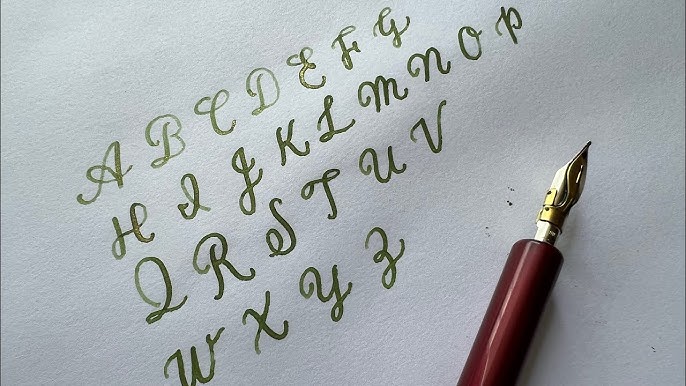 A B C D E F G
H I J K L M N O P
Q R S T U V
W X Y Z